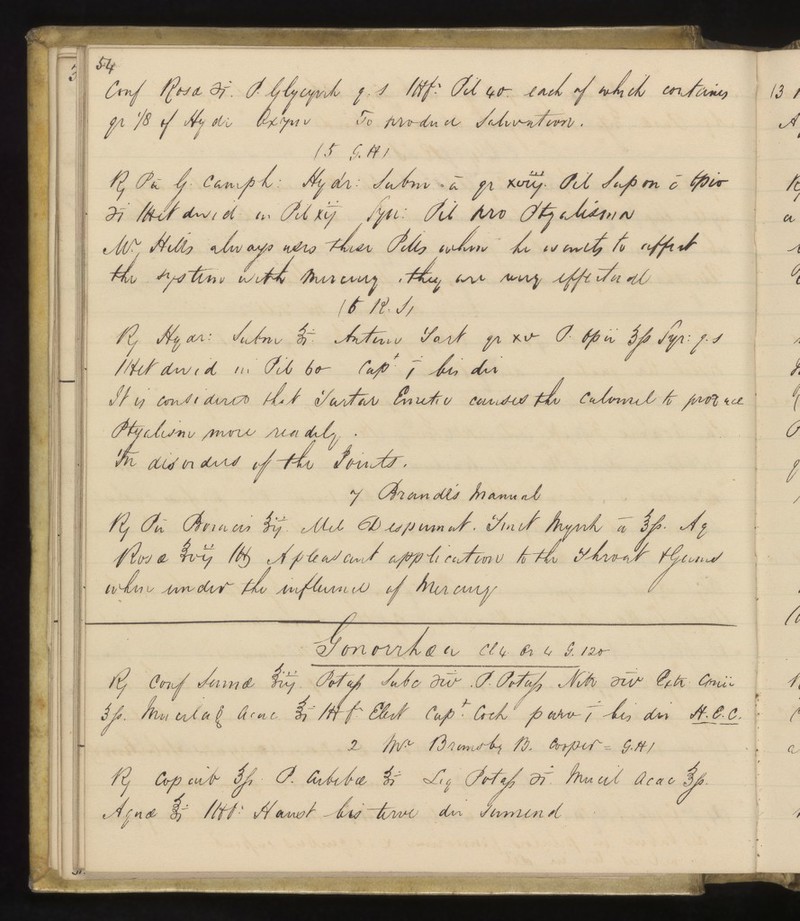 54
Conf Rosæ ʒi. P. Glycyrrh q. s Mft Pil 40 each of which contains
gr 1/8 of Hydr Oxym To produce Salivation.
15 G.H
℞ Pu G. Camph: Hydr: Subm. a gr xviij. Pil Sapon c Opio
ʒi M et divid in Pil xij Sig: Pil pro Ptyalismo
Mr. Hills always uses these Pills when he wants to affect
the system with Mercury, they are very effectual
℞ Hydr: Subm ʒi. Antim Tart gr xv P. Opii ʒß Syr: q. s
M et divid in Pil 60 Capt i bis die
It is considered that Tartar Emetic causes the Calomel to produce
Ptyalism more readily.
In disorders of the Joints.
7 Brande's Manual
℞ Pu Boracis ʒij. Mel Despumat. Tinct Myrrh a ℥ß. Aq
Rosæ ℥vij M A pleasant application to the Throat & Gums
when under the influence of Mercury
Gonorrhœa Cl 4 Or 4 G. 120
℞ Conf Sennæ Potass Subc ʒiv. P. Potass Nitr ʒiv Extr
ʒß. Mucilag Acac ℥i Mft Elect Capt. Coch parv i bis die H.C.C.
2 Mr Bramsby B. Cooper = G.H
℞ Copaib ʒß P. Cubebæ ʒi Liq Potass ʒi. Mucil Acac ℥ß.
Aquæ ℥i Mft: Haust bis terve die sumend